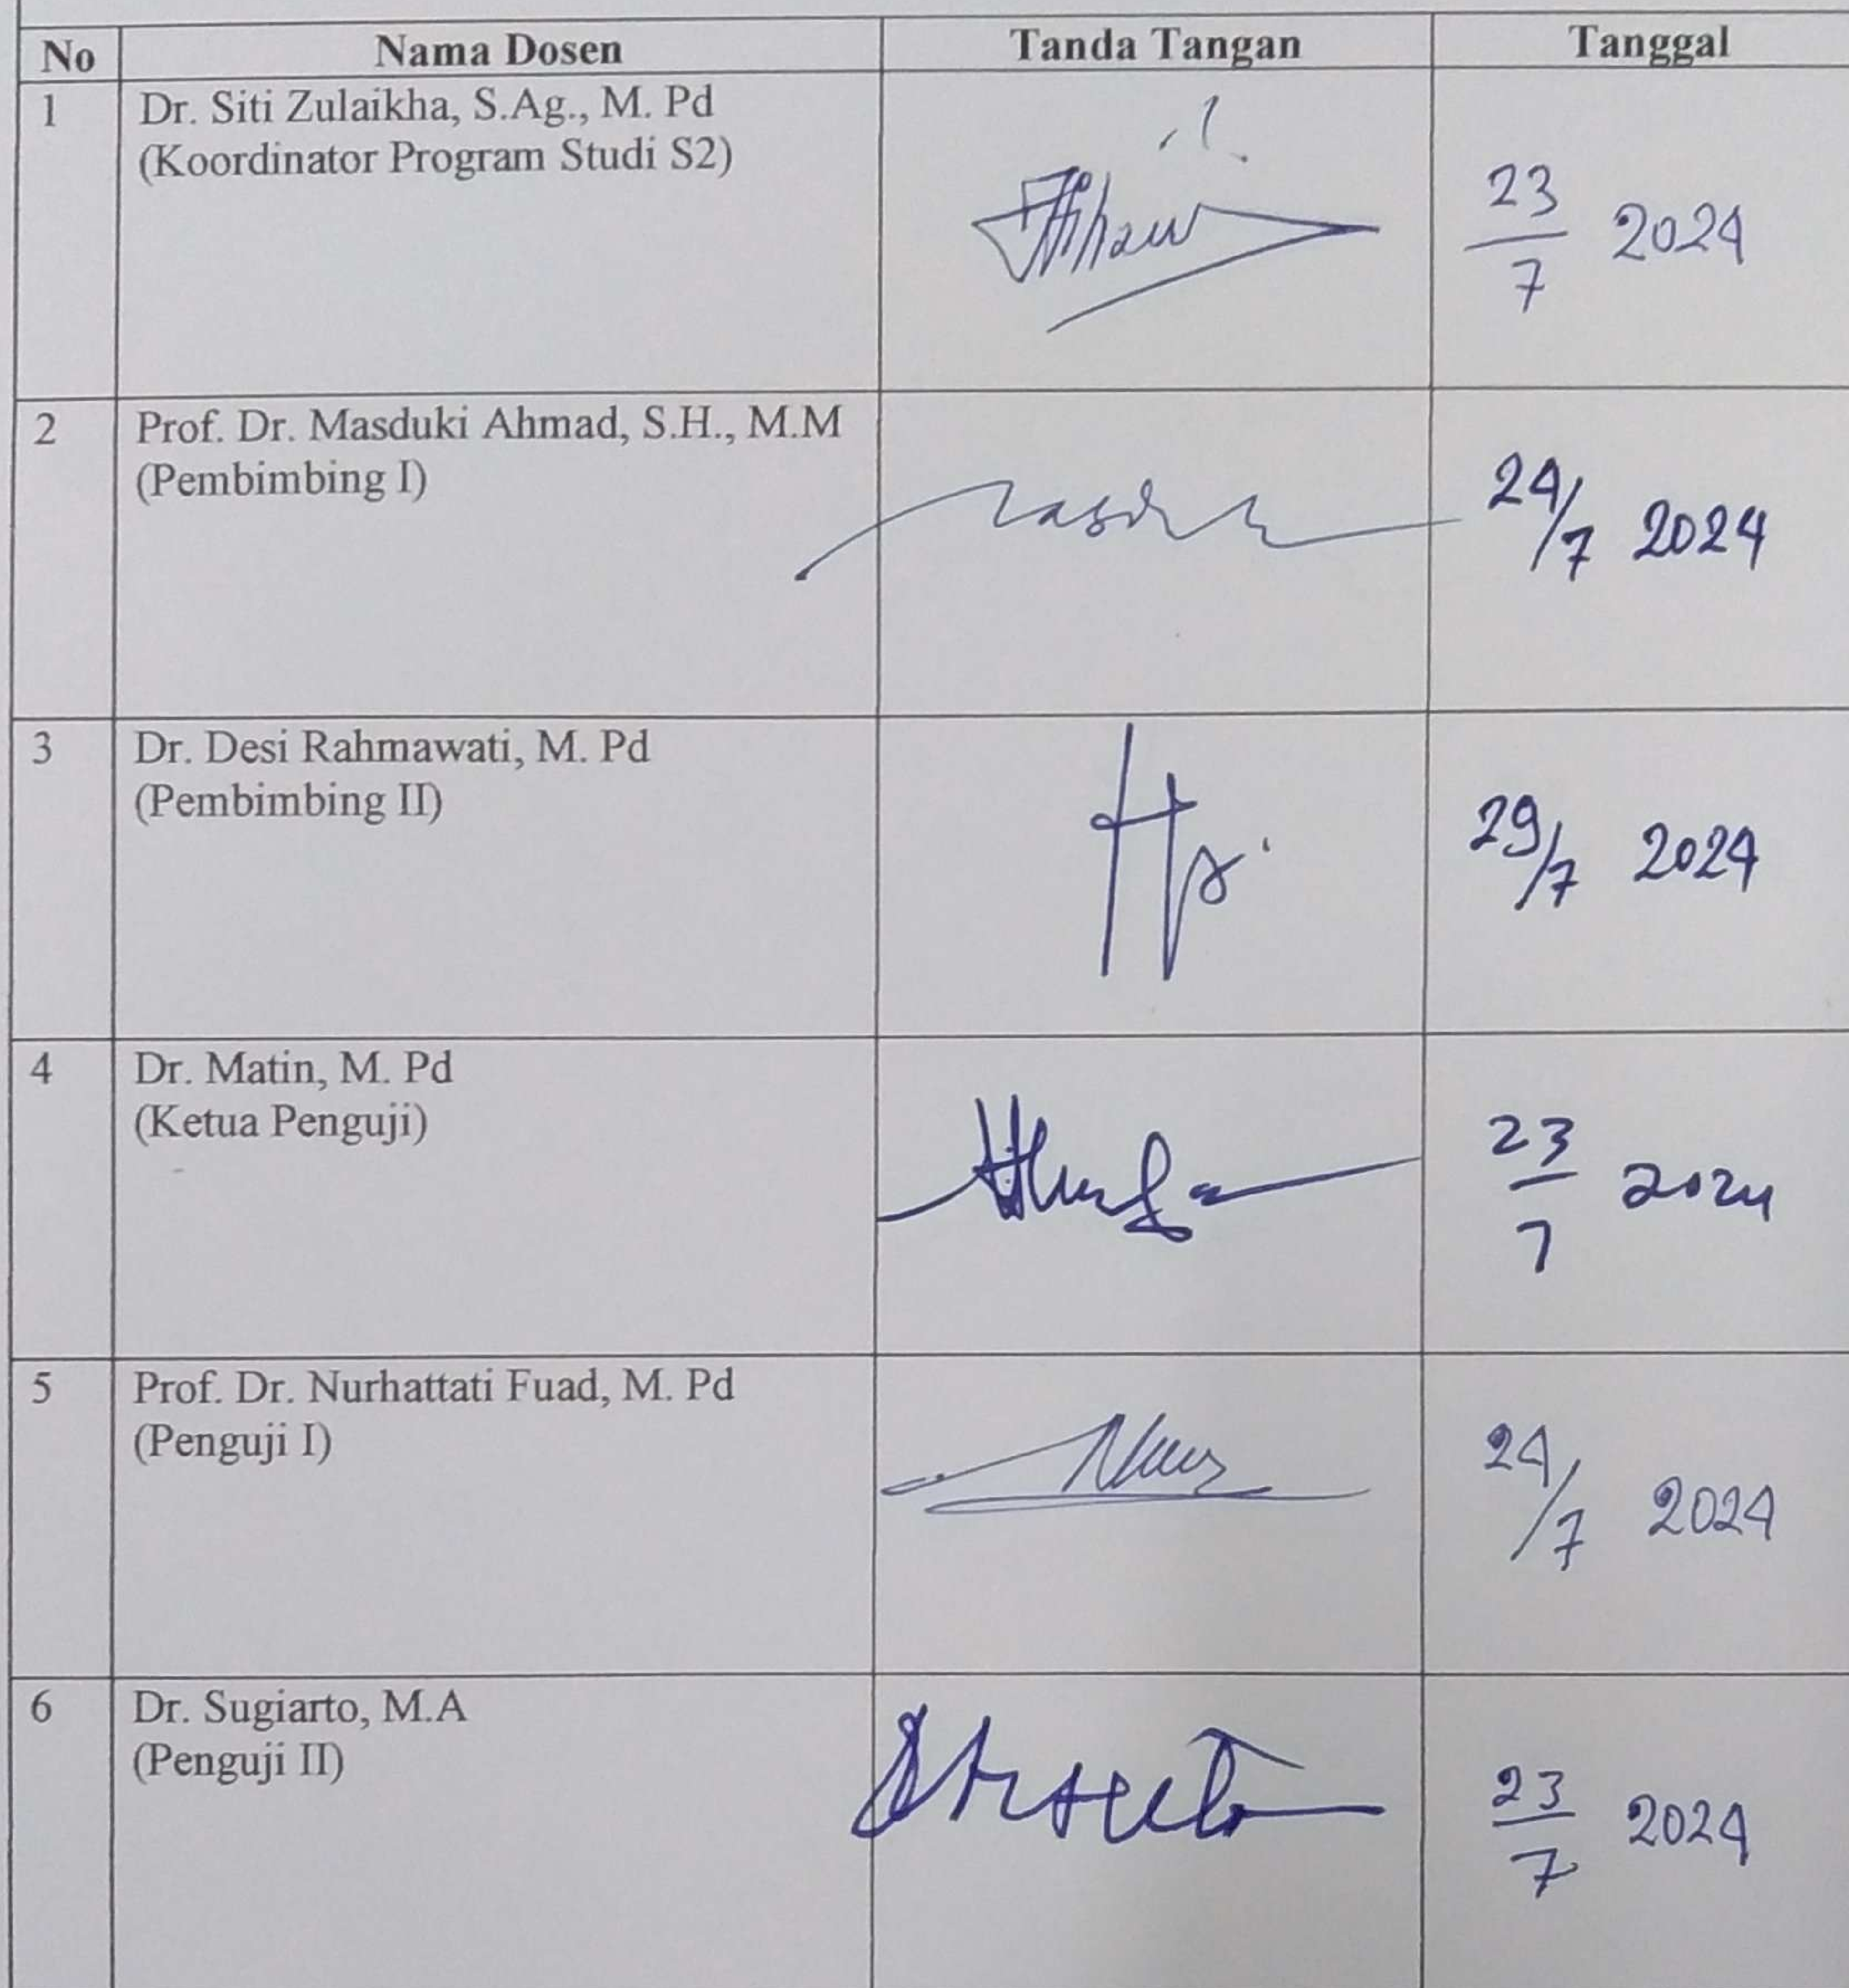 No Nama Dosen Tanda Tangan Tanggal
1 Dr. Siti Zulaikha, S.Ag., M. Pd
(Koordinator Program Studi S2)
23/7 2024
2 Prof. Dr. Masduki Ahmad, S.H., M.M
(Pembimbing I)
24/7 2024
3 Dr. Desi Rahmawati, M. Pd
(Pembimbing II)
29/7 2024
4 Dr. Matin, M. Pd
(Ketua Penguji)
23/7 2024
5 Prof. Dr. Nurhattati Fuad, M. Pd
(Penguji I)
24/7 2024
6 Dr. Sugiarto, M.A
(Penguji II)
23/7 2024